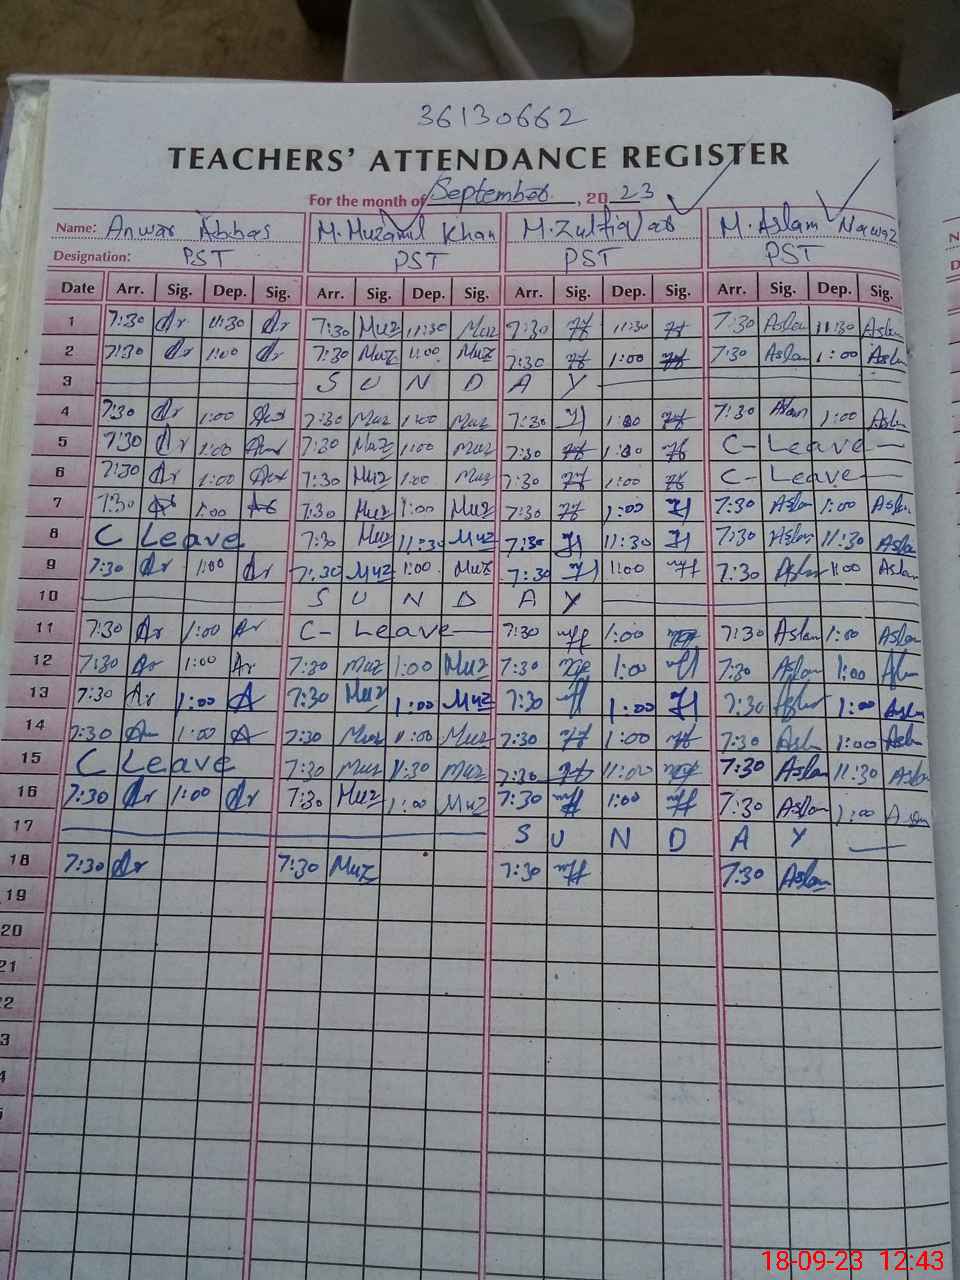 36130662
TEACHERS' ATTENDANCE REGISTER
For the month of September, 20 23
Name: Anwar Abbas M. Muzamil Khan M. Zulfiqar M. Aslam Nawaz
Designation: PST PST PST PST
Date Arr. Sig. Dep. Sig. Arr. Sig. Dep. Sig. Arr. Sig. Dep. Sig. Arr. Sig. Dep. Sig.
1 7:30 Ar 11:30 Ar 7:30 Muz 11:30 Muz 7:30 11:30 7:30 Aslam 11:30 Aslam
2 7:30 Ar 1:00 Ar 7:30 Muz 1:00 Muz 7:30 1:00 7:30 Aslam 1:00 Aslam
3 S U N D A Y
4 7:30 Ar 1:00 7:30 Muz 1:00 Muz 7:30 1:00 7:30 Aslam 1:00 Aslam
5 7:30 Ar 1:00 7:30 Muz 1:00 Muz 7:30 1:00 C- Leave
6 7:30 Ar 1:00 7:30 Muz 1:00 Muz 7:30 1:00 C- Leave
7 7:30 1:00 7:30 Muz 1:00 Muz 7:30 1:00 7:30 Aslam 1:00 Aslam
8 C Leave 7:30 Muz 11:30 Muz 7:30 11:30 7:30 Aslam 11:30 Aslam
9 7:30 Ar 1:00 Ar 7:30 Muz 1:00 Muz 7:30 1:00 7:30 Aslam 1:00 Aslam
10 S U N D A Y
11 7:30 Ar 1:00 Ar C- Leave 7:30 1:00 7:30 Aslam 1:00 Aslam
12 7:30 Ar 1:00 Ar 7:30 Muz 1:00 Muz 7:30 1:00 7:30 Aslam 1:00 Aslam
13 7:30 Ar 1:00 7:30 Muz 1:00 Muz 7:30 1:00 7:30 Aslam 1:00 Aslam
14 7:30 1:00 7:30 Muz 1:00 Muz 7:30 1:00 7:30 Aslam 1:00 Aslam
15 C Leave 7:30 Muz 11:30 Muz 7:30 11:00 7:30 Aslam 11:30 Aslam
16 7:30 Ar 1:00 Ar 7:30 Muz 1:00 Muz 7:30 1:00 7:30 Aslam 1:00 Aslam
17 S U N D A Y
18 7:30 Ar 7:30 Muz 7:30 7:30 Aslam
19
20
21
22
3
4
18-09-23 12:43